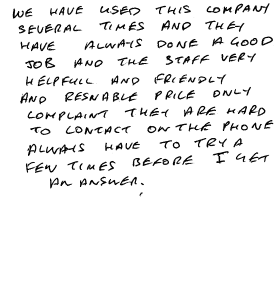 WE HAVE USED THIS COMPANY
SEVERAL TIMES AND THEY
HAVE ALWAYS DONE A GOOD
JOB AND THE STAFF VERY
HELPFULL AND FRIENDLY
AND RESNABLE PRICE ONLY
COMPLAINT THEY ARE HARD
TO CONTACT ON THE PHONE
ALWAYS HAVE TO TRY A
FEW TIMES BEFORE I GET
AN ANSWER.